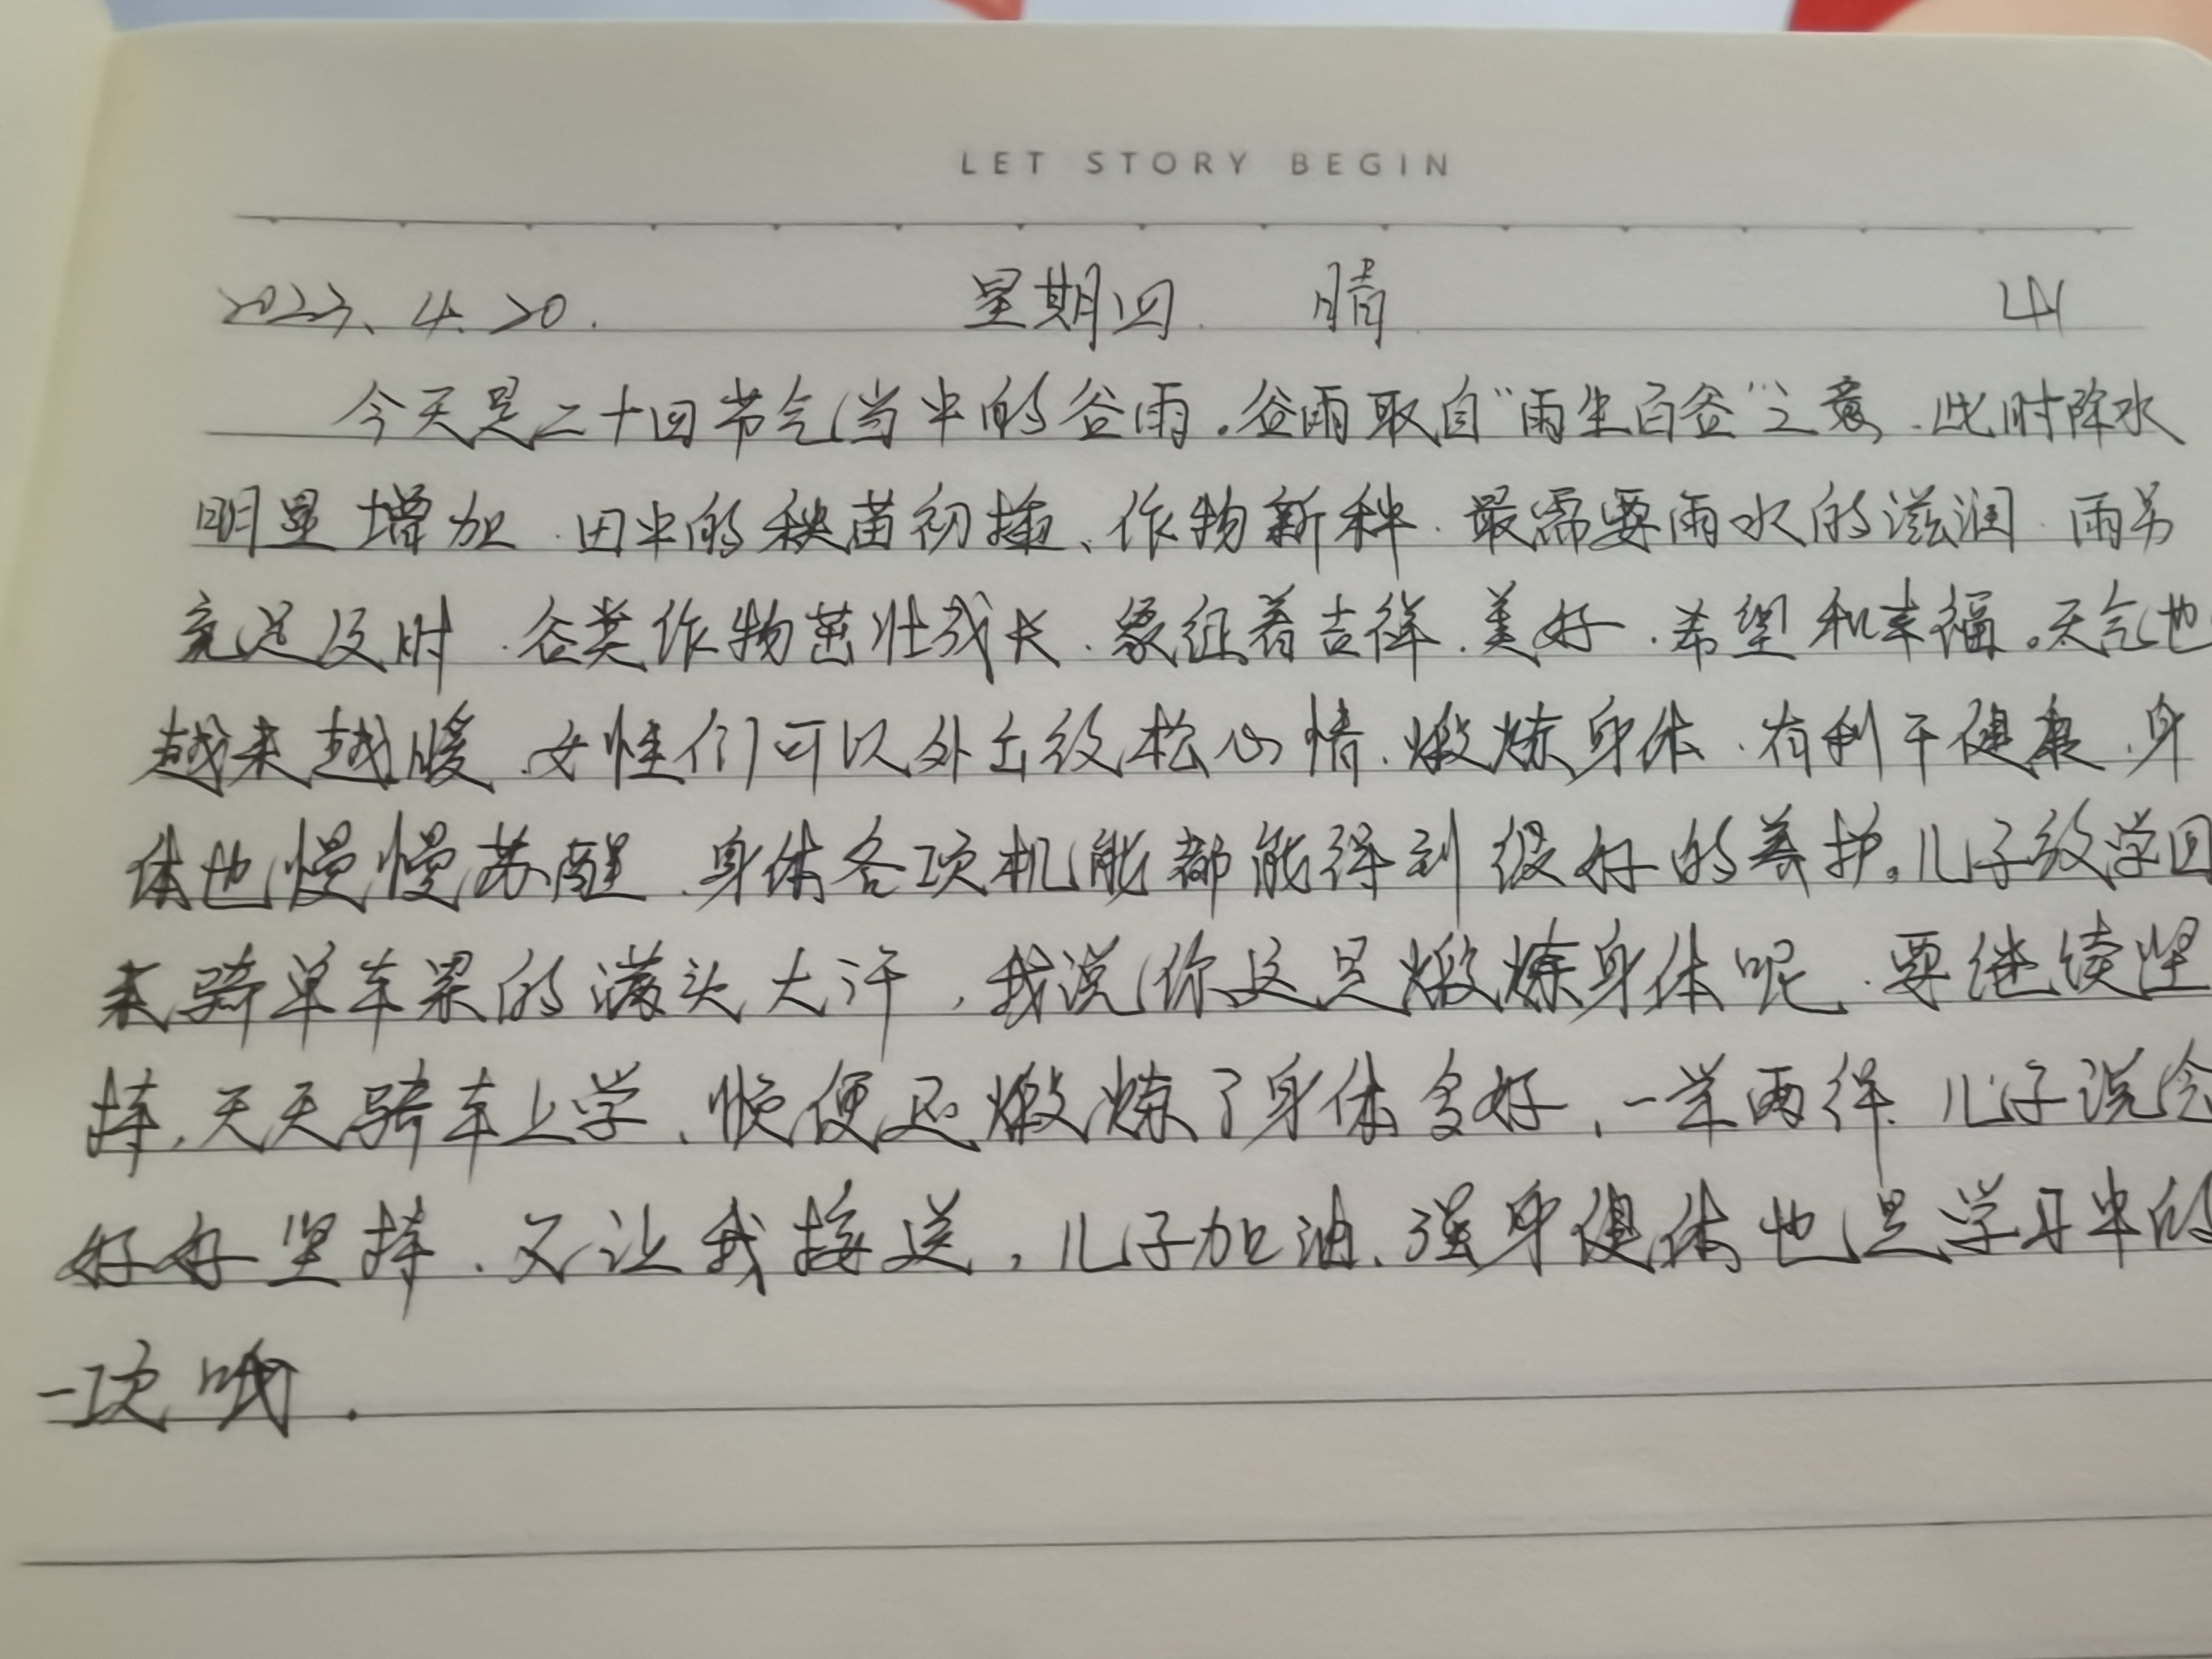 LET STORY BEGIN
2023.4.20. 星期四. 晴. 41
今天是二十四节气当中的谷雨。谷雨取自“雨生百谷”之意,此时降水
明显增加.田中的秧苗初插、作物新种.最需要雨水的滋润.雨
充足及时.谷类作物茁壮成长.象征着吉祥.美好.希望和幸福。天气也
越来越暖.女性们可以外出放松心情.煅炼身体.有利于健康.身
体也慢慢苏醒.身体各项机能都能得到很好的养护。儿子放学回
来骑单车累的满头大汗,我说你这是煅炼身体呢.要继续坚
持,天天骑车上学,顺便还煅炼了身体多好,一举两得.儿子说会
好好坚持.不让我接送,儿子加油.强身健体也是学习中的
一项哦.